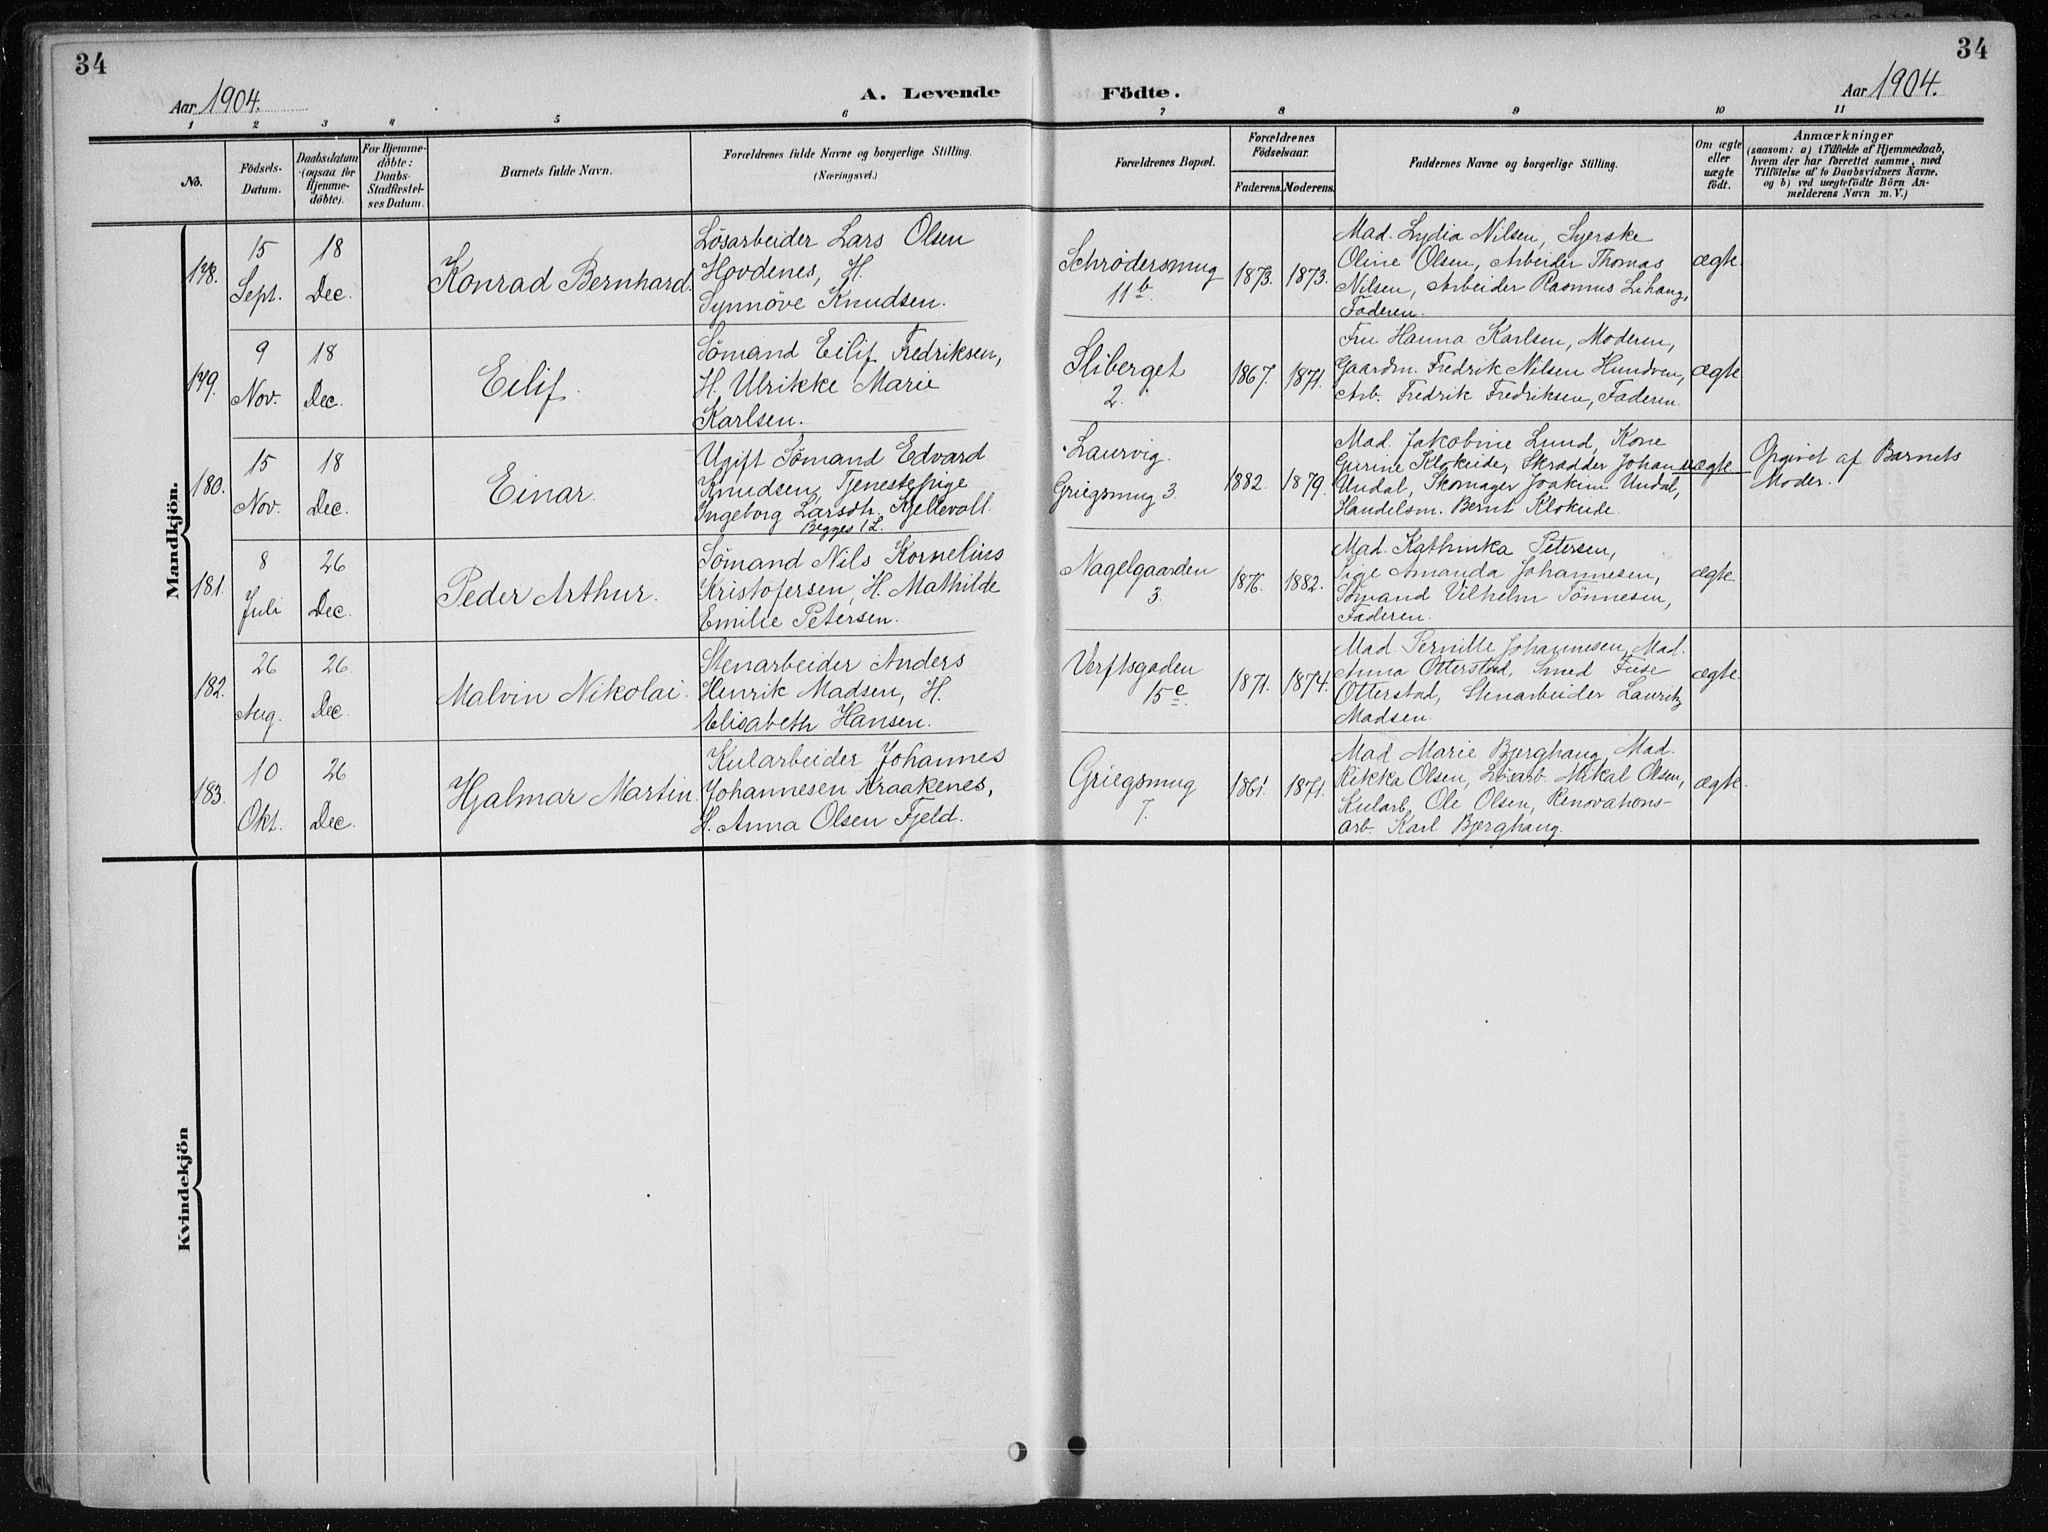 34
34
Aar 1904.
A. Levende
Födte.
Aar 1904.
1 2 3 4 5 6
7 8 9 10 11
No.
Födsels-
Datum.
Daabsdatum
(ogsaa for
Hjemme-
döbte).
For Hjemme-
döbte:
Daabs-
Stadfæstel-
ses Datum.
Barnets fulde Navn.
Forældrenes fulde Navne og borgerlige Stilling.
(Næringsvei.)
Forældrenes Bopæl.
Forældrenes
Födselsaar.
Faderens. Moderens.
Faddernes Navne og borgerlige Stilling.
Om ægte
eller
uægte
födt.
Anmærkninger
(saasom: a) i Tilfælde af Hjemmedaab,
hvem der har forrettet samme, med
Tilföielse af to Daabsvidners Navne,
og b) ved uægtefödte Börn An-
melderens Navn m. V.)
Mandkjön.
178.
15
Sept.
18
Dec.
Konrad Bernhard.
Lösarbeider Lars Olsen
Hovdenes, H.
Synnöve Knudsen.
Schrödersmug
11 b.
1873. 1873.
Mad. Lydia Nilsen, Syerske
Oline Olsen, Arbeider Thomas
Nilsen, Arbeider Rasmus Lihaug,
Faderen.
ægte.
179.
9
Nov.
18
Dec.
Eilif.
Sömand Eilif Fredriksen,
H. Ulrikke Marie
Karlsen.
Sliberget
2.
1867. 1871.
Fru Hanna Karlsen, Moderen,
Gaardm. Fredrik Nilsen Hundven,
Arb. Fredrik Fredriksen, Faderen.
ægte
180.
15
Nov.
18
Dec.
Einar.
Ugift Sömand Edvard
Knudsen, Tjenestepige
Ingeborg Larsdtr. Kjellevoll.
Begges 1 L.
Laurvig.
Griegsmug 3.
1882. 1879.
Mad. Jakobine Lund, Kone
Gurine Klokeide, Skrædder Johan
Undal, Skomager Joakim Undal,
Handelsm. Bernt Klokeide.
uægte
Opgivet af Barnets
Moder.
181.
8
Juli
26
Dec.
Peder Arthur.
Sömand Nils Kornelius
Kristofersen, H. Mathilde
Emilie Petersen.
Nagelgaarden
3.
1876. 1882.
Mad. Kathinka Petersen,
Pige Amanda Johannesen,
Sömand Vilhelm Tönnesen,
Faderen.
ægte.
182.
26
Aug.
26.
Dec.
Malvin Nikolai.
Stenarbeider Anders
Henrik Madsen, H.
Elisabeth Hansen.
Verftsgaden
15 c.
1871. 1874.
Mad Pernille Johannesen, Mad.
Anna Otterstad, Smed
Otterstad, Stenarbeider Lauritz
Madsen.
ægte.
183.
10
Okt.
26
Dec.
Hjalmar Martin.
Kularbeider Johannes
Johannesen Kraakenes,
H. Anna Olsen Fjeld.
Griegsmug
7.
1861. 1871.
Mad Marie Bjerghaug, Mad.
Rikka Olsen, Lösarb. Mikal Olsen,
Kularb. Ole Olsen, Renovations-
arb. Karl Bjerghaug.
ægte.
Kvindekjön